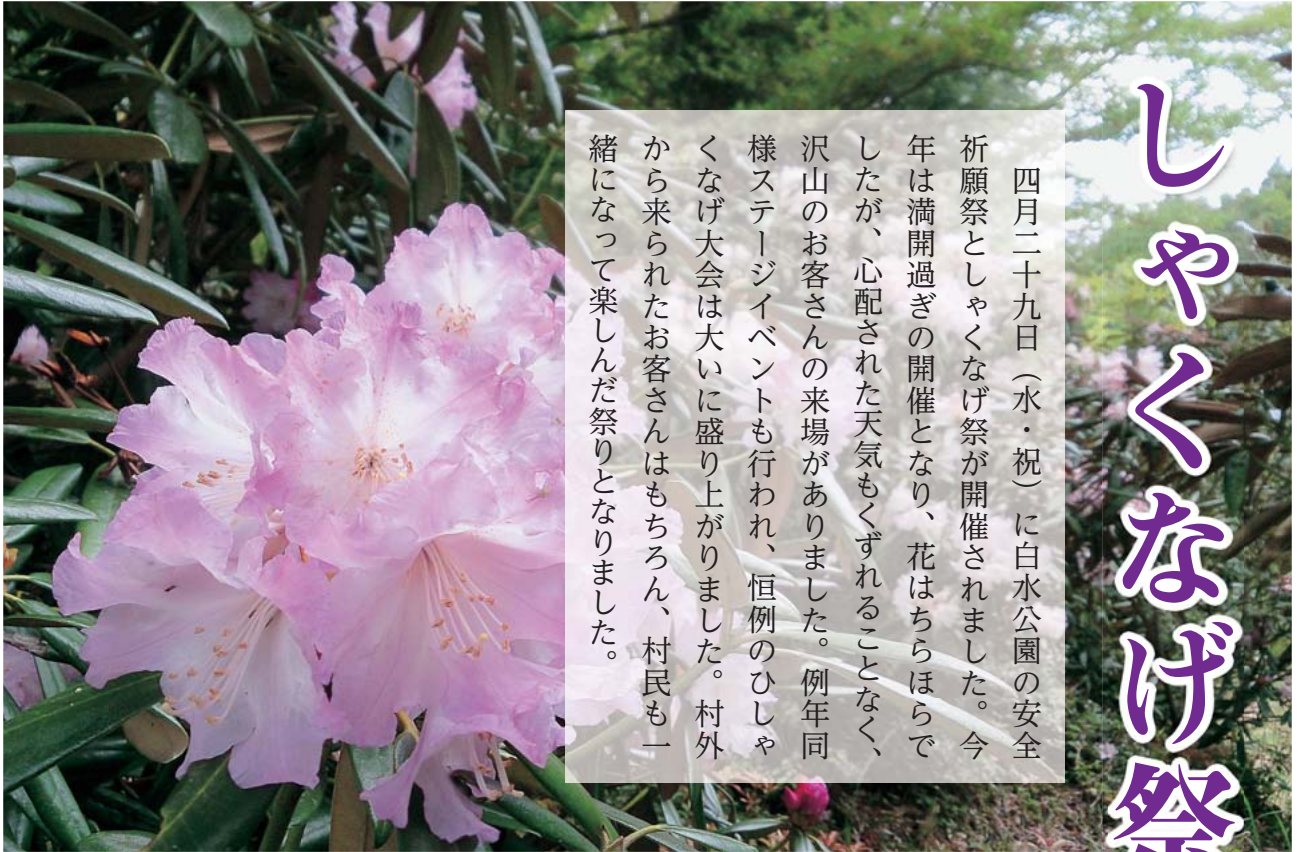 しゃくなげ祭
四月二十九日（水・祝）に白水公園の安全
祈願祭としゃくなげ祭が開催されました。今
年は満開過ぎの開催となり、花はちらほらで
したが、心配された天気もくずれることなく、
沢山のお客さんの来場がありました。例年同
様ステージイベントも行われ、恒例のひしゃ
くなげ大会は大いに盛り上がりました。村外
から来られたお客さんはもちろん、村民も一
緒になって楽しんだ祭りとなりました。